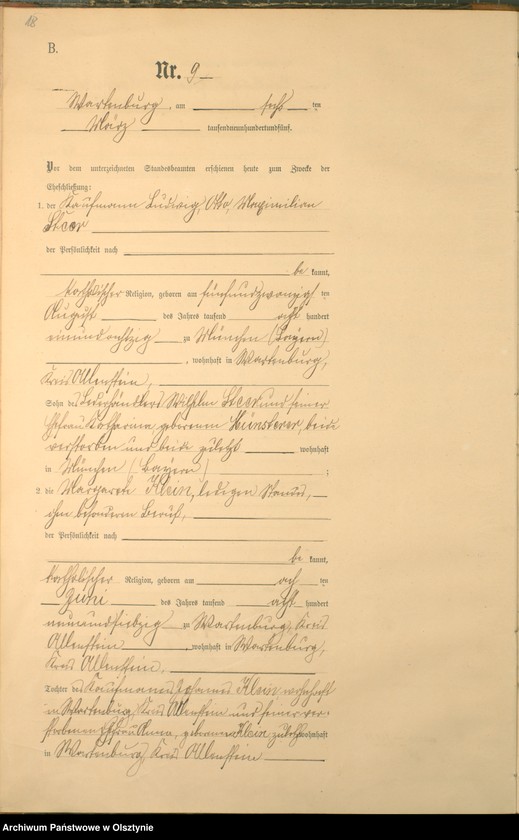 18
B.
Nr. 9
Wartenburg, am sechs ten
März tausendneunhundertundfünf.
Vor dem unterzeichneten Standesbeamten erschienen heute zum Zwecke der
Eheschließung:
1. der Kaufmann Ludwig, Otto, Maximilian
der Persönlichkeit nach
be kannt,
katholischer Religion, geboren am fünfundzwanzigs ten
August des Jahres tausend acht hundert
einundachtzig zu München (Bayern)
, wohnhaft in Wartenburg,
Kreis Allenstein,
Sohn des Lederhändlers Wilhelm und seiner
Ehefrau Katharina geborenen Künsterer, beide
verstorben und beide zuletzt wohnhaft
in München (Bayern) ;
2. die Margarete Klein, ledigen Standes,
ohne besonderen Beruf,
der Persönlichkeit nach
be kannt,
katholischer Religion, geboren am ach ten
Juni des Jahres tausend acht hundert
neunundsiebzig zu Wartenburg, Kreis
Allenstein, wohnhaft in Wartenburg,
Kreis Allenstein,
Tochter des Kaufmannes Johannes Klein wohnhaft
in Wartenburg, Kreis Allenstein und seiner ver-
storbenen Ehefrau Anna, geborenen Klein, zuletzt wohnhaft
in Wartenburg, Kreis Allenstein
Archiwum Państwowe w Olsztynie